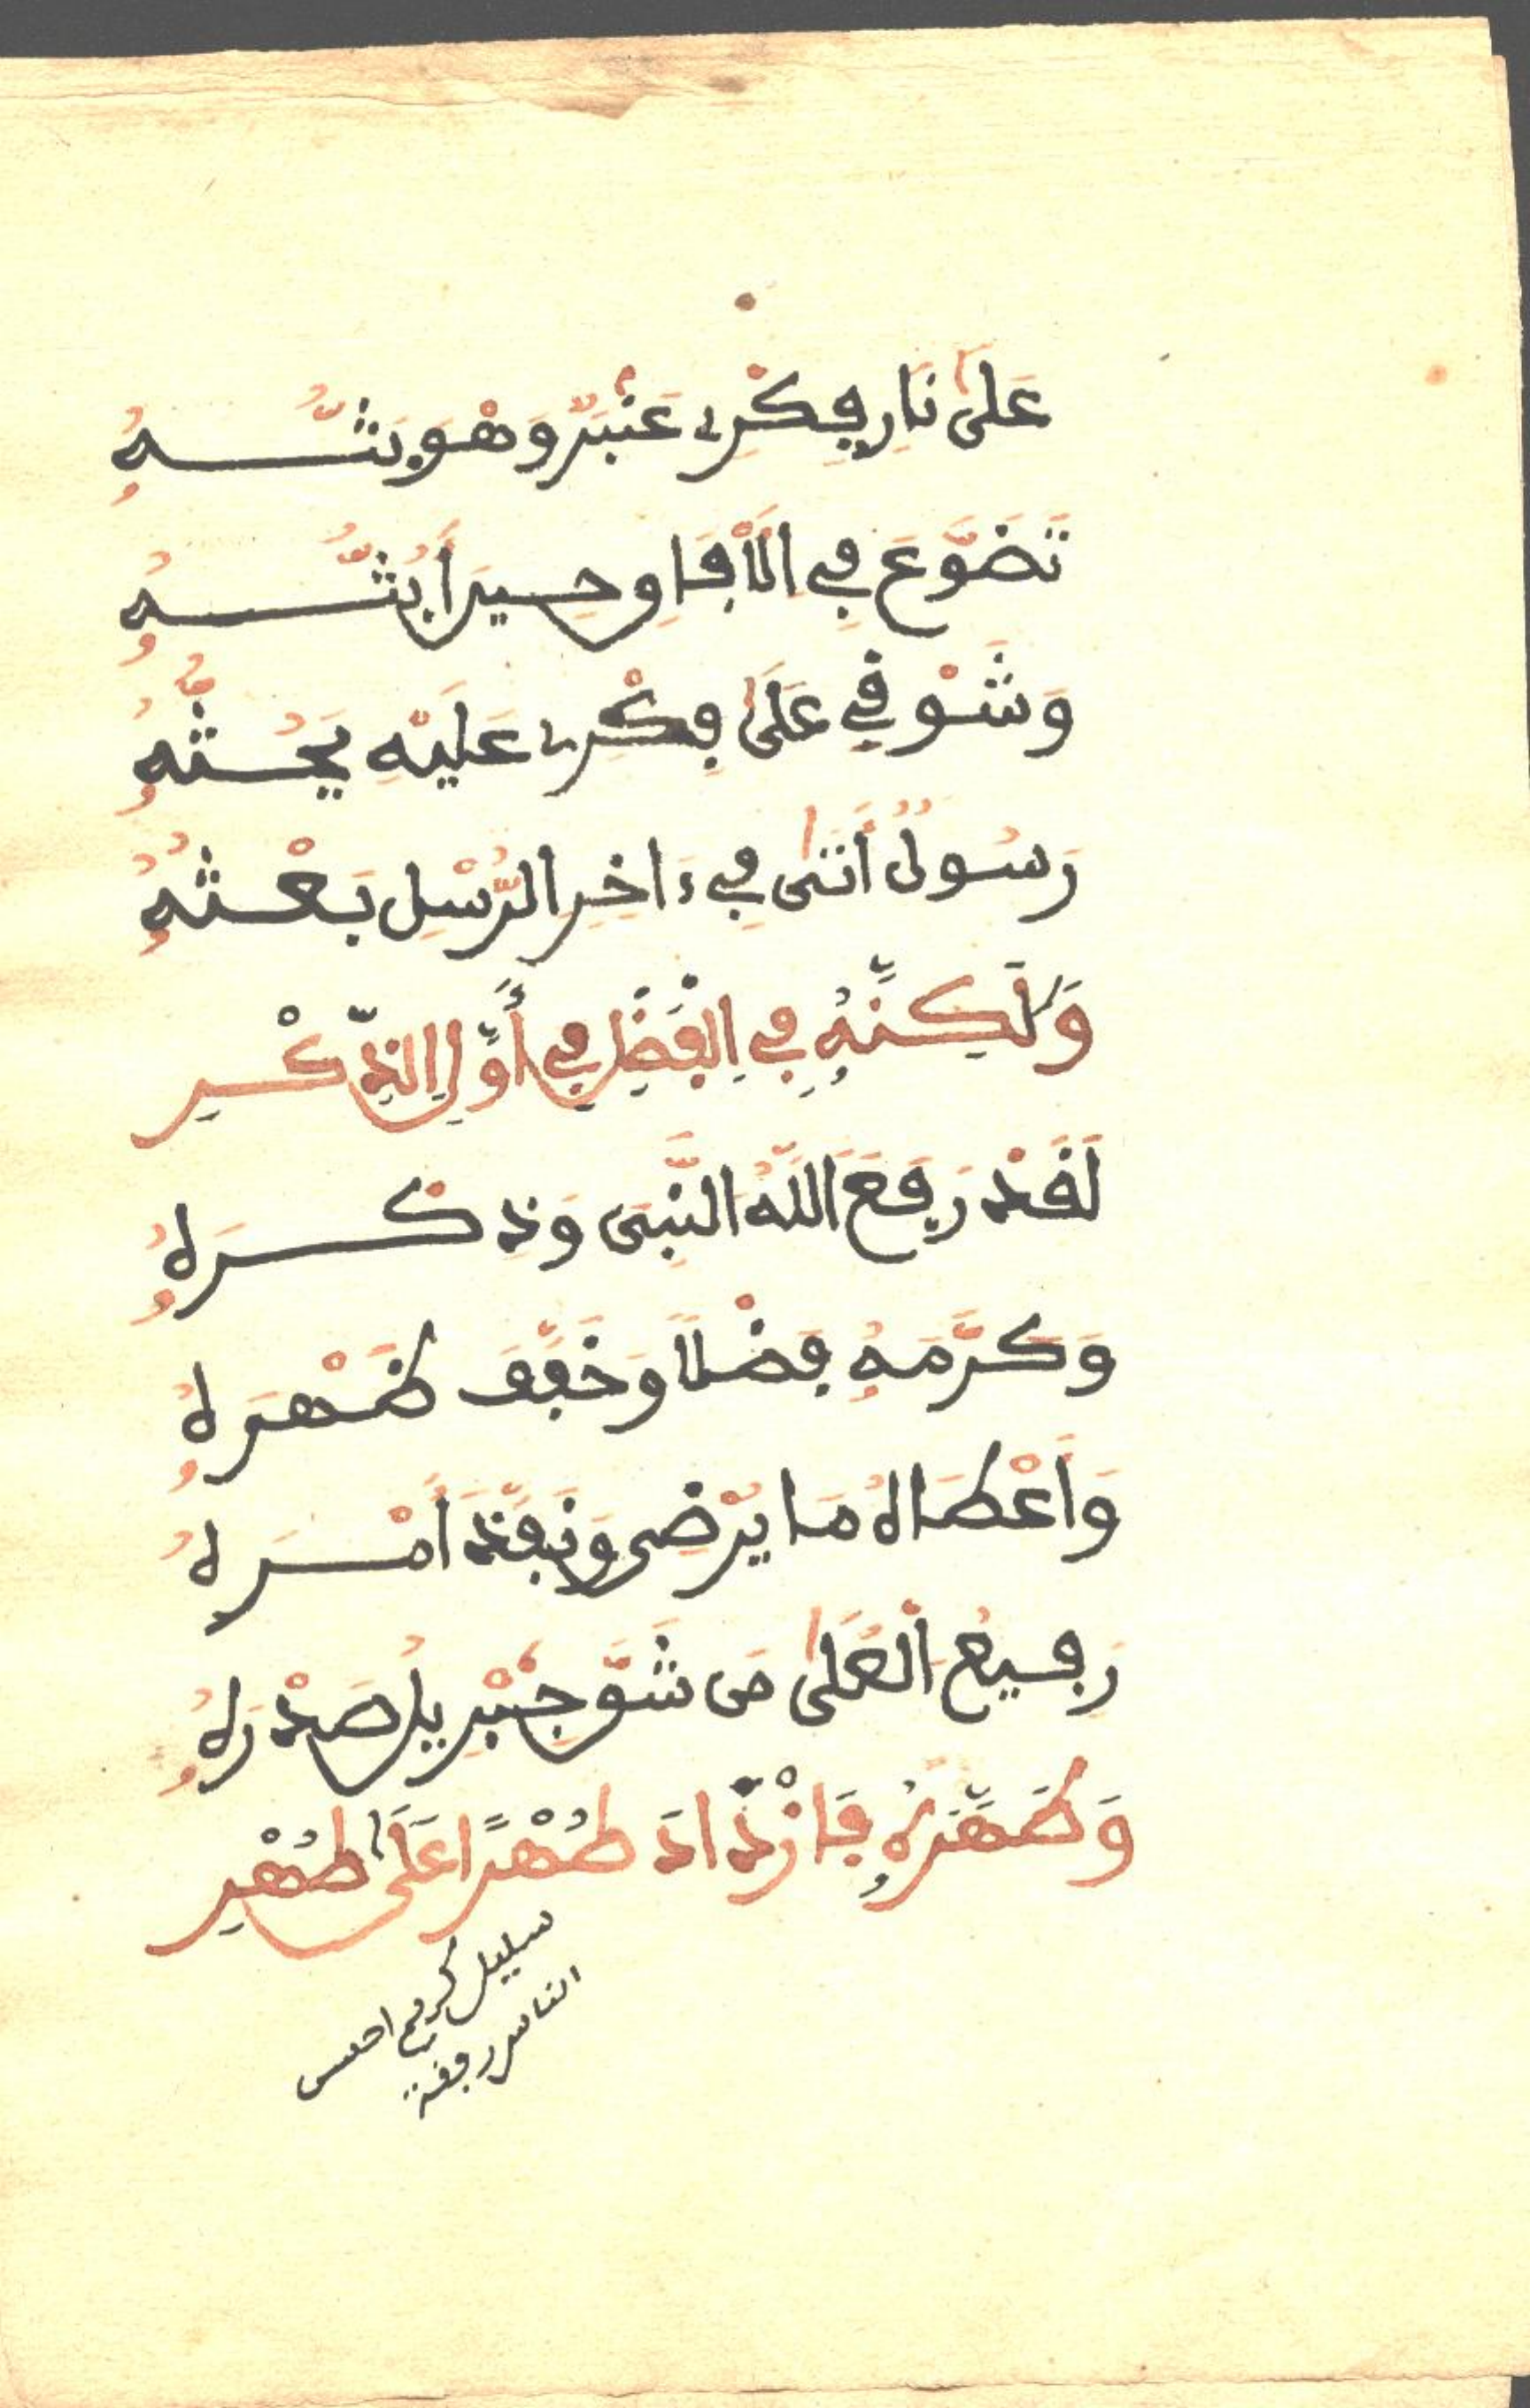 عَلَىٰ نَارِ فِكْرِے عَنْبَرٌ وَهْوَ بَثُّهُ
تَضَوَّعَ فِے الَآفَاقِ حِينَ أَبُثُّهُ
وَشَوْقِي عَلَىٰ فِكْرِے عَلَيْهِ يَحُثُّهُ
رَسُولٌ أَتَىٰ فِے ءَاخِرِ الرُّسْلِ بَعْثُهُ
وَلَٰكِنَّهُ فِے اِلْفَضْلِ فِے أَوَّلِ اِلذِّكْرِ
لَقَدْ رَفَعَ اللَّهُ النَّبِىَ وَذِكْرَهُ
وَكَرَّمَهُ فَضْلًا وَخَفَّفَ ظَهْرَهُ
وَأَعْطَاهُ مَا يُرْضِى وَنَفَّذَ أَمْرَهُ
رَفِيعُ الْعُلَىٰ مَن شَقَّ جِبْرِيلُ صَدْرَهُ
وَطَهَّرَهُ فَازْدَادَ طُهْرًا عَلَىٰ طُهْرِ
سليل كريم احسن
الناس رفقة